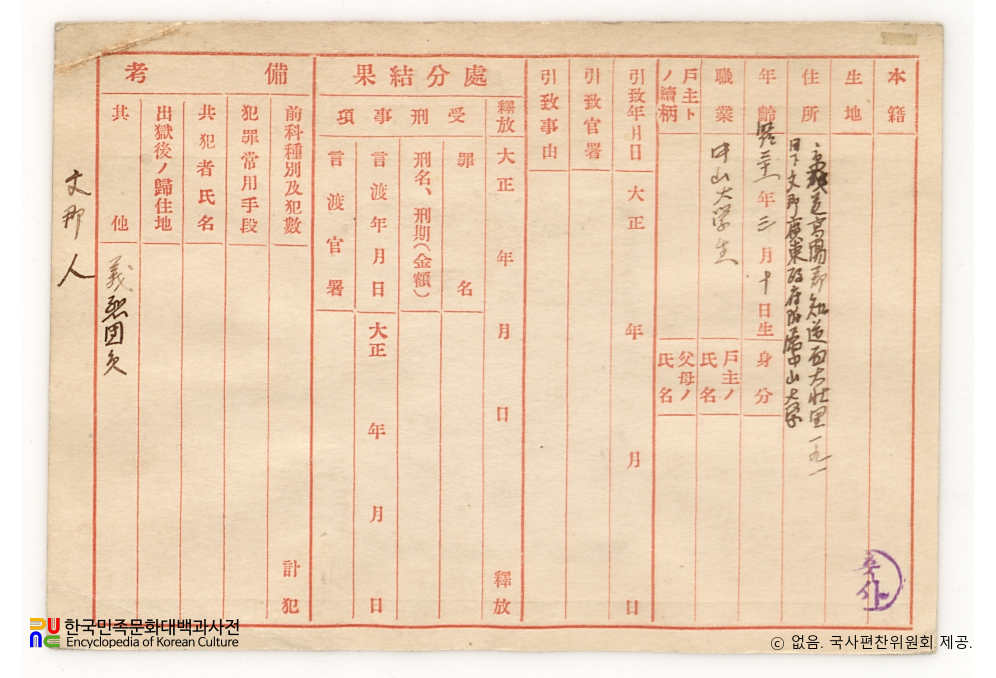 本籍
生地
住所
京畿道高陽郡知道面大壯里一九一
目下支那廣東政府所屬中山大学
年齢
年三月十日生
身分
職業
中山大学生
戸主ノ氏名
戸主トノ續柄
父母ノ氏名
引致年月日 大正 年 月 日
引致官署
引致事由
處分結果
釋放 大正 年 月 日 釋放
受刑事項
罪名
刑名、刑期(金額)
言渡年月日 大正 年 月 日
言渡官署
備考
前科種別及犯數 計 犯
犯罪常用手段
共犯者氏名
出獄後ノ歸住地
其他
義烈団員
支那人
한국민족문화대백과사전
Encyclopedia of Korean Culture
ⓒ 없음. 국사편찬위원회 제공.